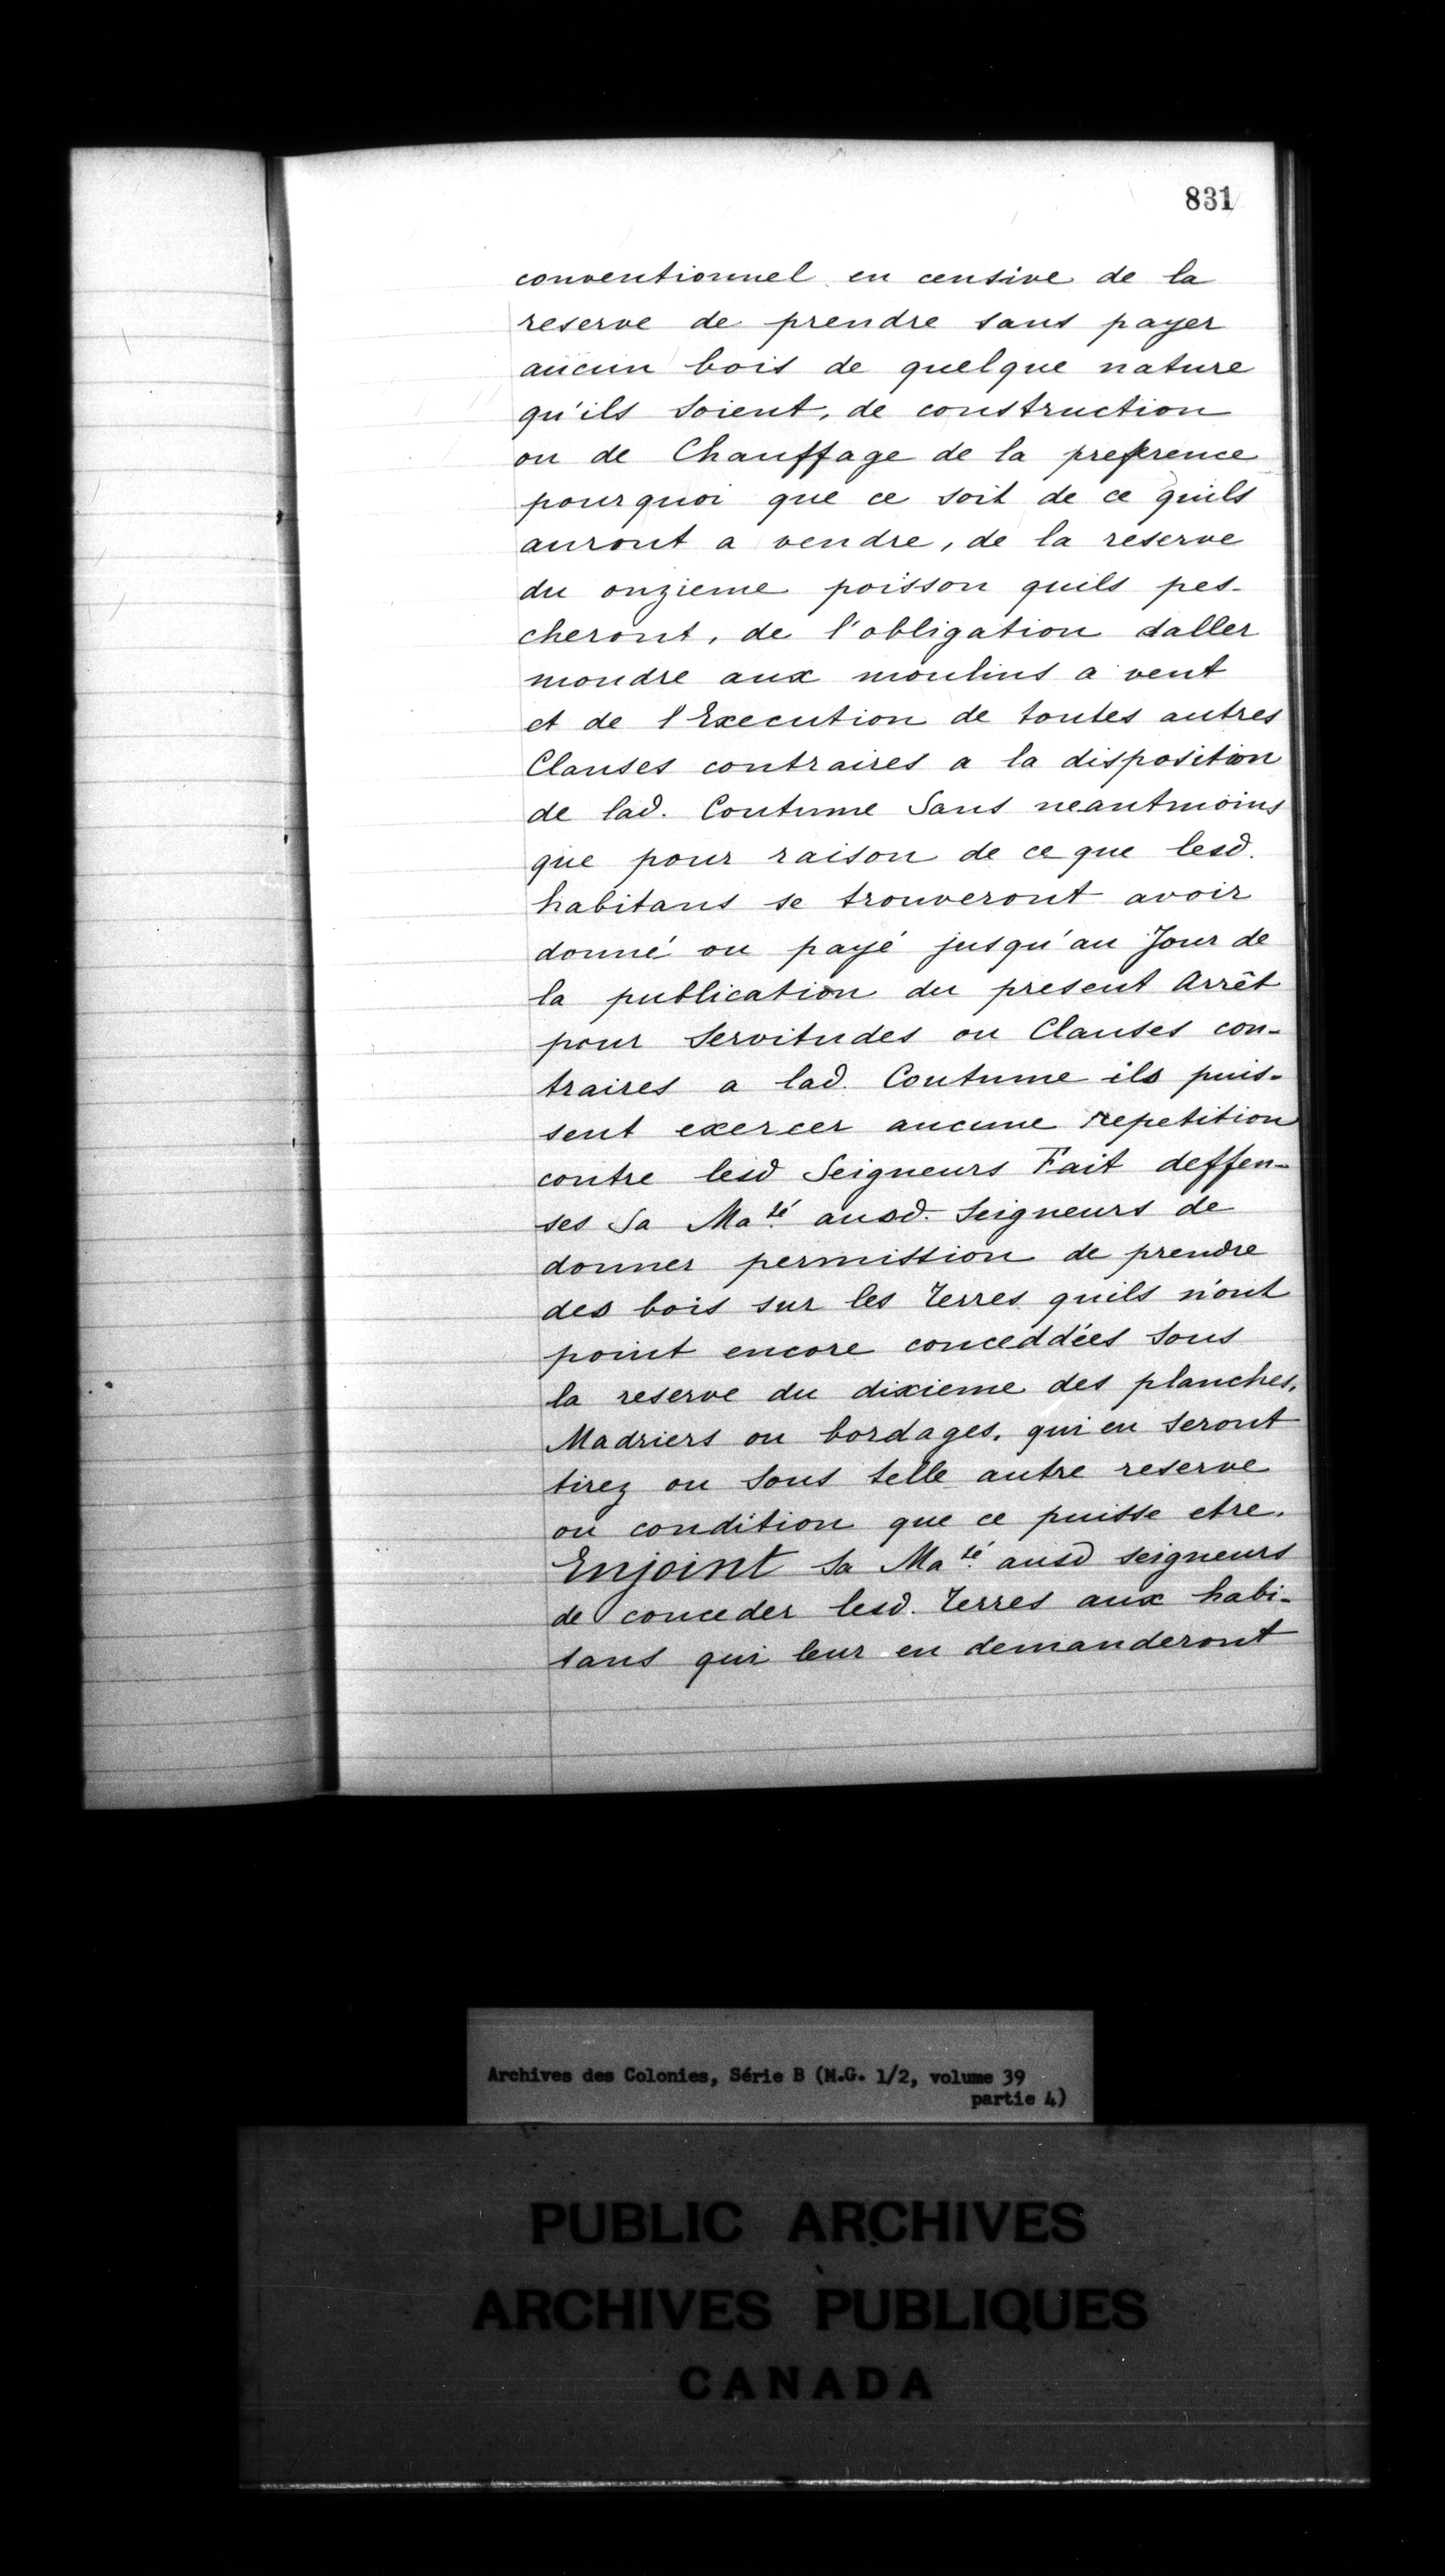 831
conventionnel en censive de la
reserve de prendre sans payer
aucun bois de quelque nature
qu'ils soient, de construction
ou de Chauffage de la preference
pourquoi que ce soit de ce quils
auront a vendre, de la reserve
du onzieme poisson quils pes-
cheront, de l'obligation daller
moudre aux moulins a vent
et de l Execution de toutes autres
Clauses contraires a la disposition
de lad. Coutume Sans neantmoins
que pour raison de ce que lesd.
habitans se trouveront avoir
donné ou payé jusqu'au Jour de
la publication du present Arrêt
pour Servitudes ou Clauses con-
traires a lad. Coutume ils puis-
sent exercer aucune repetition
contre lesd Seigneurs Fait deffen-
ses Sa Maté ausd. Seigneurs de
donner permission de prendre
des bois sur les Terres quils n'ont
point encore conceddées sous
la reserve du dixieme des planches,
Madriers ou bordages, qui en seront
tirez ou sous telle autre reserve
ou condition que ce puisse etre.
Enjoint Sa Maté ausd seigneurs
de conceder lesd. Terres aux habi-
tans qui leur en demanderont
Archives des Colonies, Série B (M.G. 1/2, volume 39
partie 4)
PUBLIC ARCHIVES
ARCHIVES PUBLIQUES
CANADA